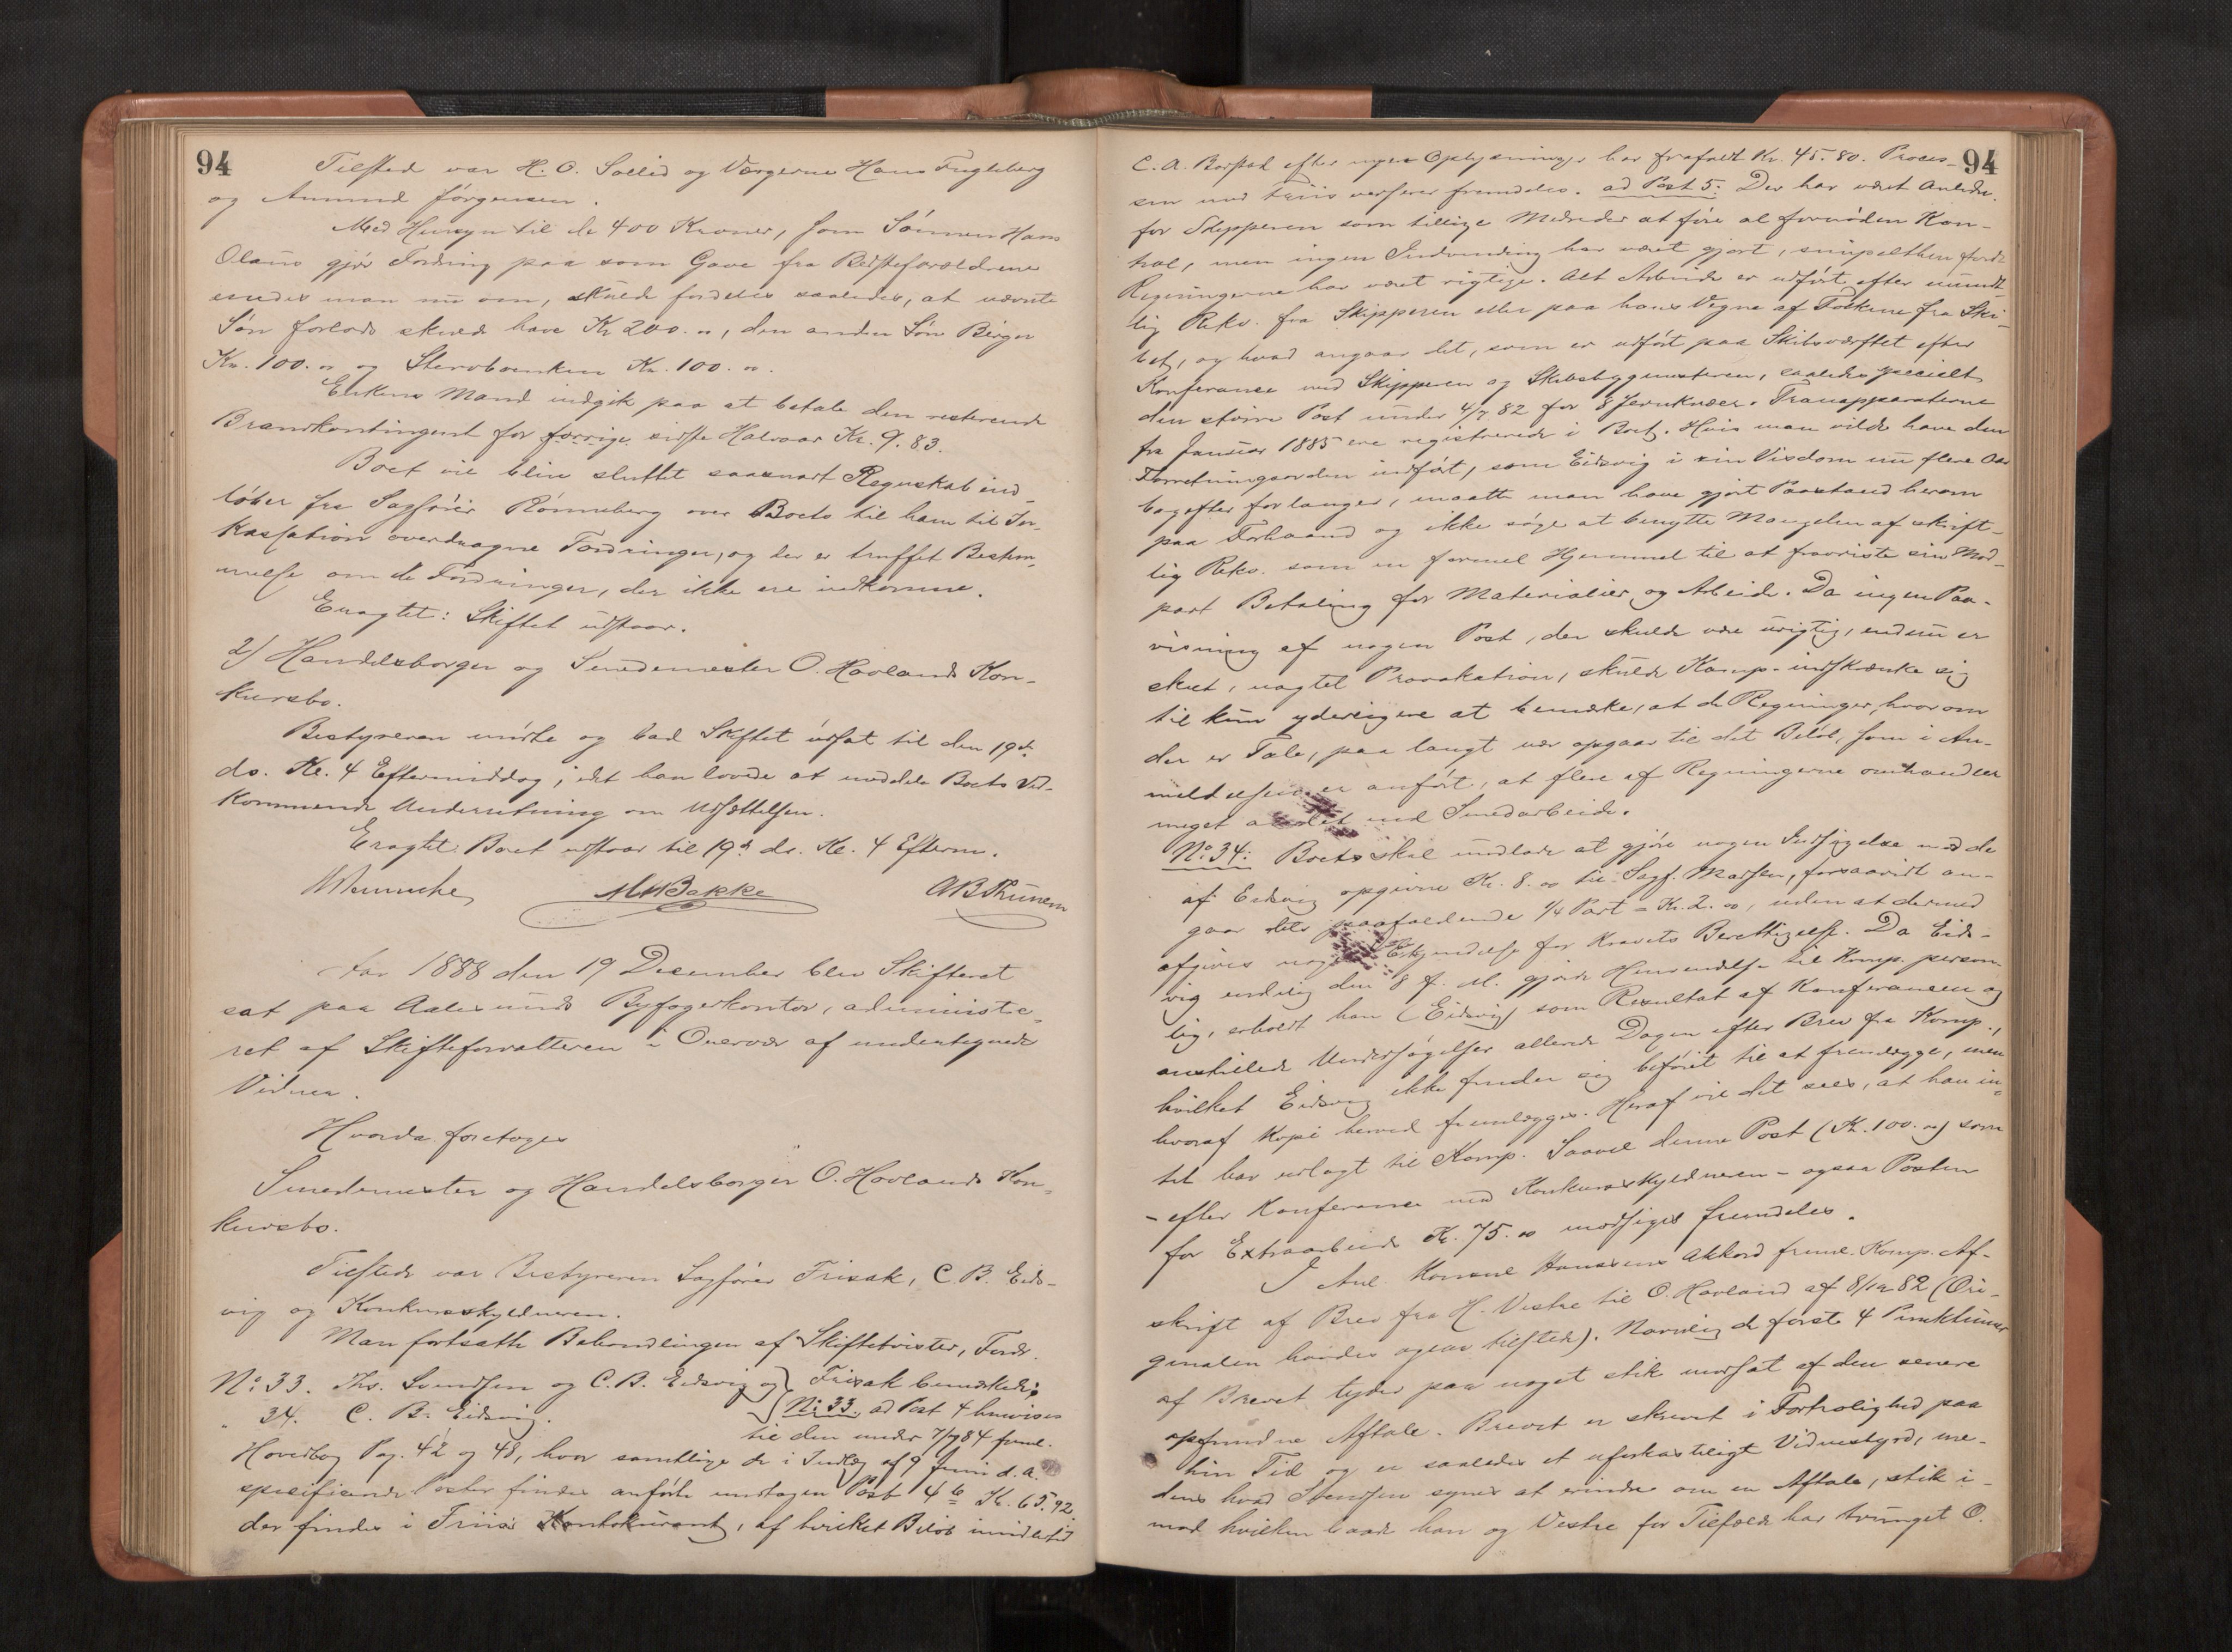 94
Tilstede var H. O. Sollid og Værgerne Hans Fugleberg
og Amund Jørgensen.
Med Hensyn til de 400 Kroner, som Sønnen Hans
Olaus gjør Fordring paa som Gave fra Bedsteforældrene
enedes man nu om, skulde fordeles saaledes, at nævnte
Søn forlods skulde have Kr 200.00, den anden Søn Birger
Kr. 100.00 og Stervboenken Kr. 100.00.
Enkens Mand indgik paa at betale den resterende
Brandkontingent for forrige sidste Halvaar Kr. 9.83.
Boet vil blive sluttet saasnart Regnskab ind-
løber fra Sagfører Rønneberg over Boets til ham til In-
kassation overdragne Fordringer, og der er truffet Bestem-
melse om de Fordringer, der ikke ere indkomne.
Eragtet: Skiftet udstaar.
2) Handelsborger og Smedemester O. Hovlands Kon-
kursbo.
Bestyreren mødte og bad Skiftet udsat til den 19de
ds. Kl. 4 Eftermiddag, idet han lovede at meddele Boets Ved-
kommende Underretning om Udsættelsen.
Eragtet: Boet udstaar til 19de ds. Kl. 4 Efterm.
MBakke ABThunem
Aar 1888 den 19 December blev Skifteret
sat paa Aalesunds Byfogerkontor, administre-
ret af Skifteforvalteren i Overvær af undertegnede
Vidner.
Hvorda foretoges
Smedemester og Handelsborger O. Hovlands Kon-
kursbo.
Tilstede var Bestyreren Sagfører Frisak, C. B. Eids-
vig og Konkursskyldneren.
Man fortsatte Behandlingen af Skiftetvister, Fordr.
No 33. Ths. Svendsen og C. B. Eidsvig og } Frisak bemærkede:
" 34. C. B. Eidsvig. No 33. ad Post 4 henvises
til den under 7/7 84 freml.
Hovedbog Pag. 42 og 48, hvor samtlige de i Indlæg af 9 Juni d. A.
specificerede Poster findes anførte undtagen Post 4 b Kr. 65.92
der findes i Friis' Kontokurant, af hvilket Beløb imidlertid
94
C. A. Borstad efter nyere Oplysninger har frafaldt Kr. 45.80. Proces-
sen mod Friis verserer fremdeles. ad Post 5: Der har været Anledn.
for Skipperen som tillige Medreder at føre al fornøden Kon-
trol, men ingen Indvending har været gjort, simpelthen fordi
Regningerne har været rigtige. Alt Arbeide er udført efter mundt-
lig Rekv. fra Skipperen eller paa hans Vegne af Folkene fra Ski-
bet, og hvad angaar det, som er udført paa Skibsværftet efter
Konferanse med Skipperen og Skibsbygmesteren, saaledes specielt
den større Post under 4/7 82 for 8 Jernknæer. Tranapparaterne
fra Januar 1885 ere registrerede i Boet. Hvis man vilde have den
Forretningsorden indført, som Eidsvig i sin Visdom nu flere Aar
bagefter forlanger, maatte man have gjort Paastand herom
paa Forhaand og ikke søge at benytte Mangelen af skrift-
lig Rekv. som en formel Hjemmel til at fravriste sin Mod-
part Betaling for Materialier og Arbeide. Da ingen Paa-
visning af nogen Post, der skulde være urigtig, endnu er
skeet, uagtet Provokation, skulde Komp. indskrænke sig
til kun yderligere at bemærke, at de Regninger, hvorom
der er Tale, paa langt nær opgaar til det Beløb, som i An-
meldelsen er anført, at flere af Regningerne omhandler
meget andet end Smedarbeide.
No 34: Boets skal undlade at gjøre nogen Indsigelse mod de
af Eidsvig opgivne Kr. 8.00 til Sagf. Madsen, forsaavidt an-
gaar dets paafaldende 1/4 Part = Kr. 2.00, uden at dermed
afgives nogen Erkjendelse for Kravets Berettigelse. Da Eids-
vig endelig den 8 f. M. gjorde Henvendelse til Komp. person-
lig, erholdt han (Eidsvig) som Resultat af Konferansen og
anstillede Undersøgelser allerede Dagen efter Brev fra Komp.,
hvilket Eidsvig ikke finder sig beføiet til at fremlægge, men
hvoraf Kopi herved fremlægges. Heraf vil det sees, at han in-
tet har udlagt til Komp. Saavel denne Post (Kr. 100.00) som
- efter Konferanse med Konkursskyldneren - ogsaa Posten
for Extraarbeide Kr. 75.00 modsiges fremdeles.
I Anl. Konsul Hansens Akkord freml. Komp. Af-
skrift af Brev fra H. Vestre til O. Hovland af 8/12 82 (Ori-
ginalen havdes ogsaa tilstede). Navnlig de første 4 Punktumer
af Brevet tyder paa noget stik modsat af den senere
opfundne Aftale. Brevet er skrevet i Fortrolighed paa
hin Tid og er saaledes et uforkasteligt Vidnesbyrd, me-
dens hvad Svendsen synes at erindre om en Aftale, stik i-
mod hvilken baade han og Vestre for Tilfælde har tvunget O.